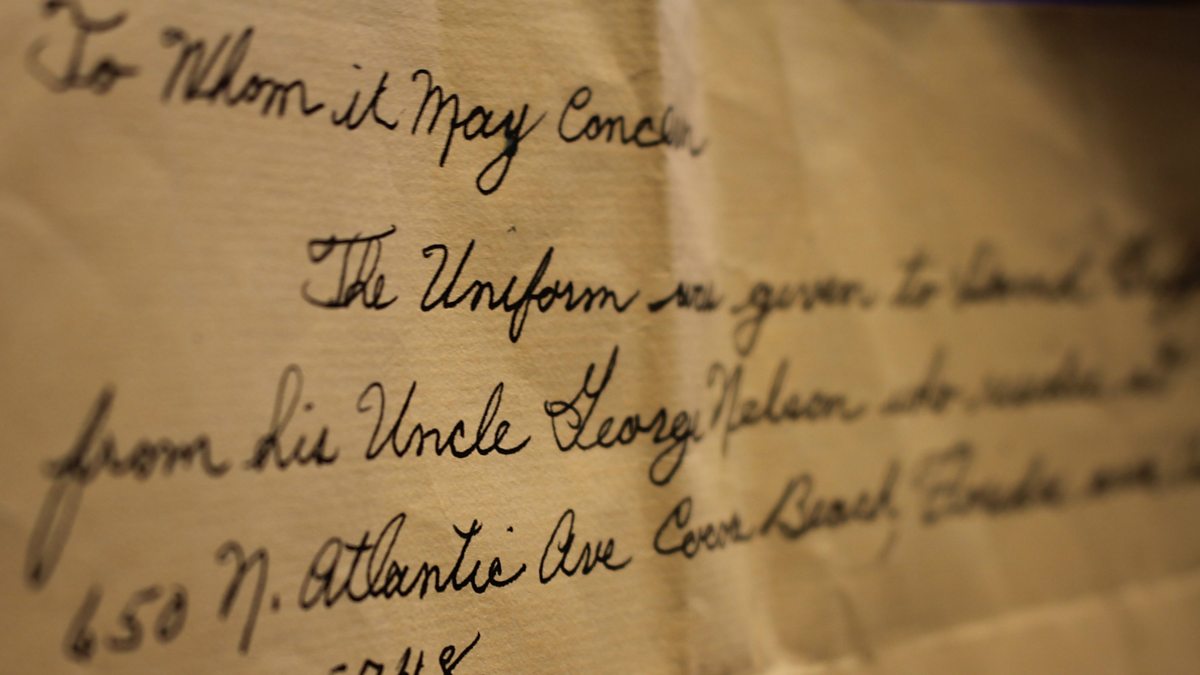 To Whom it May Concern
The Uniform are given to
from his Uncle George Nelson who resides at
650 N. Atlantic Ave Cocoa Beach Florida